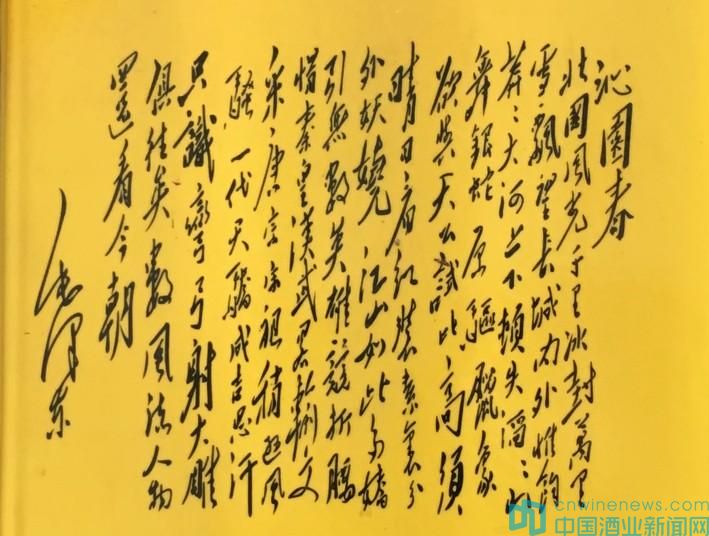 沁園春
北國風光千里冰封萬里
雪飄望長城内外惟餘
莽〻大河上下頓失滔〻山
舞銀蛇原驅臘象
欲與天公試比高須
晴日看紅裝素裹分
外妖嬈江山如此多嬌
引無數英雄競折腰
惜秦皇漢武略輸文
采唐宗宋祖稍遜風
騷一代天驕成吉思汗
只識彎弓射大雕
俱往矣數風流人物
還看今朝
毛澤東
cnwinenews.com
中国酒业新闻网